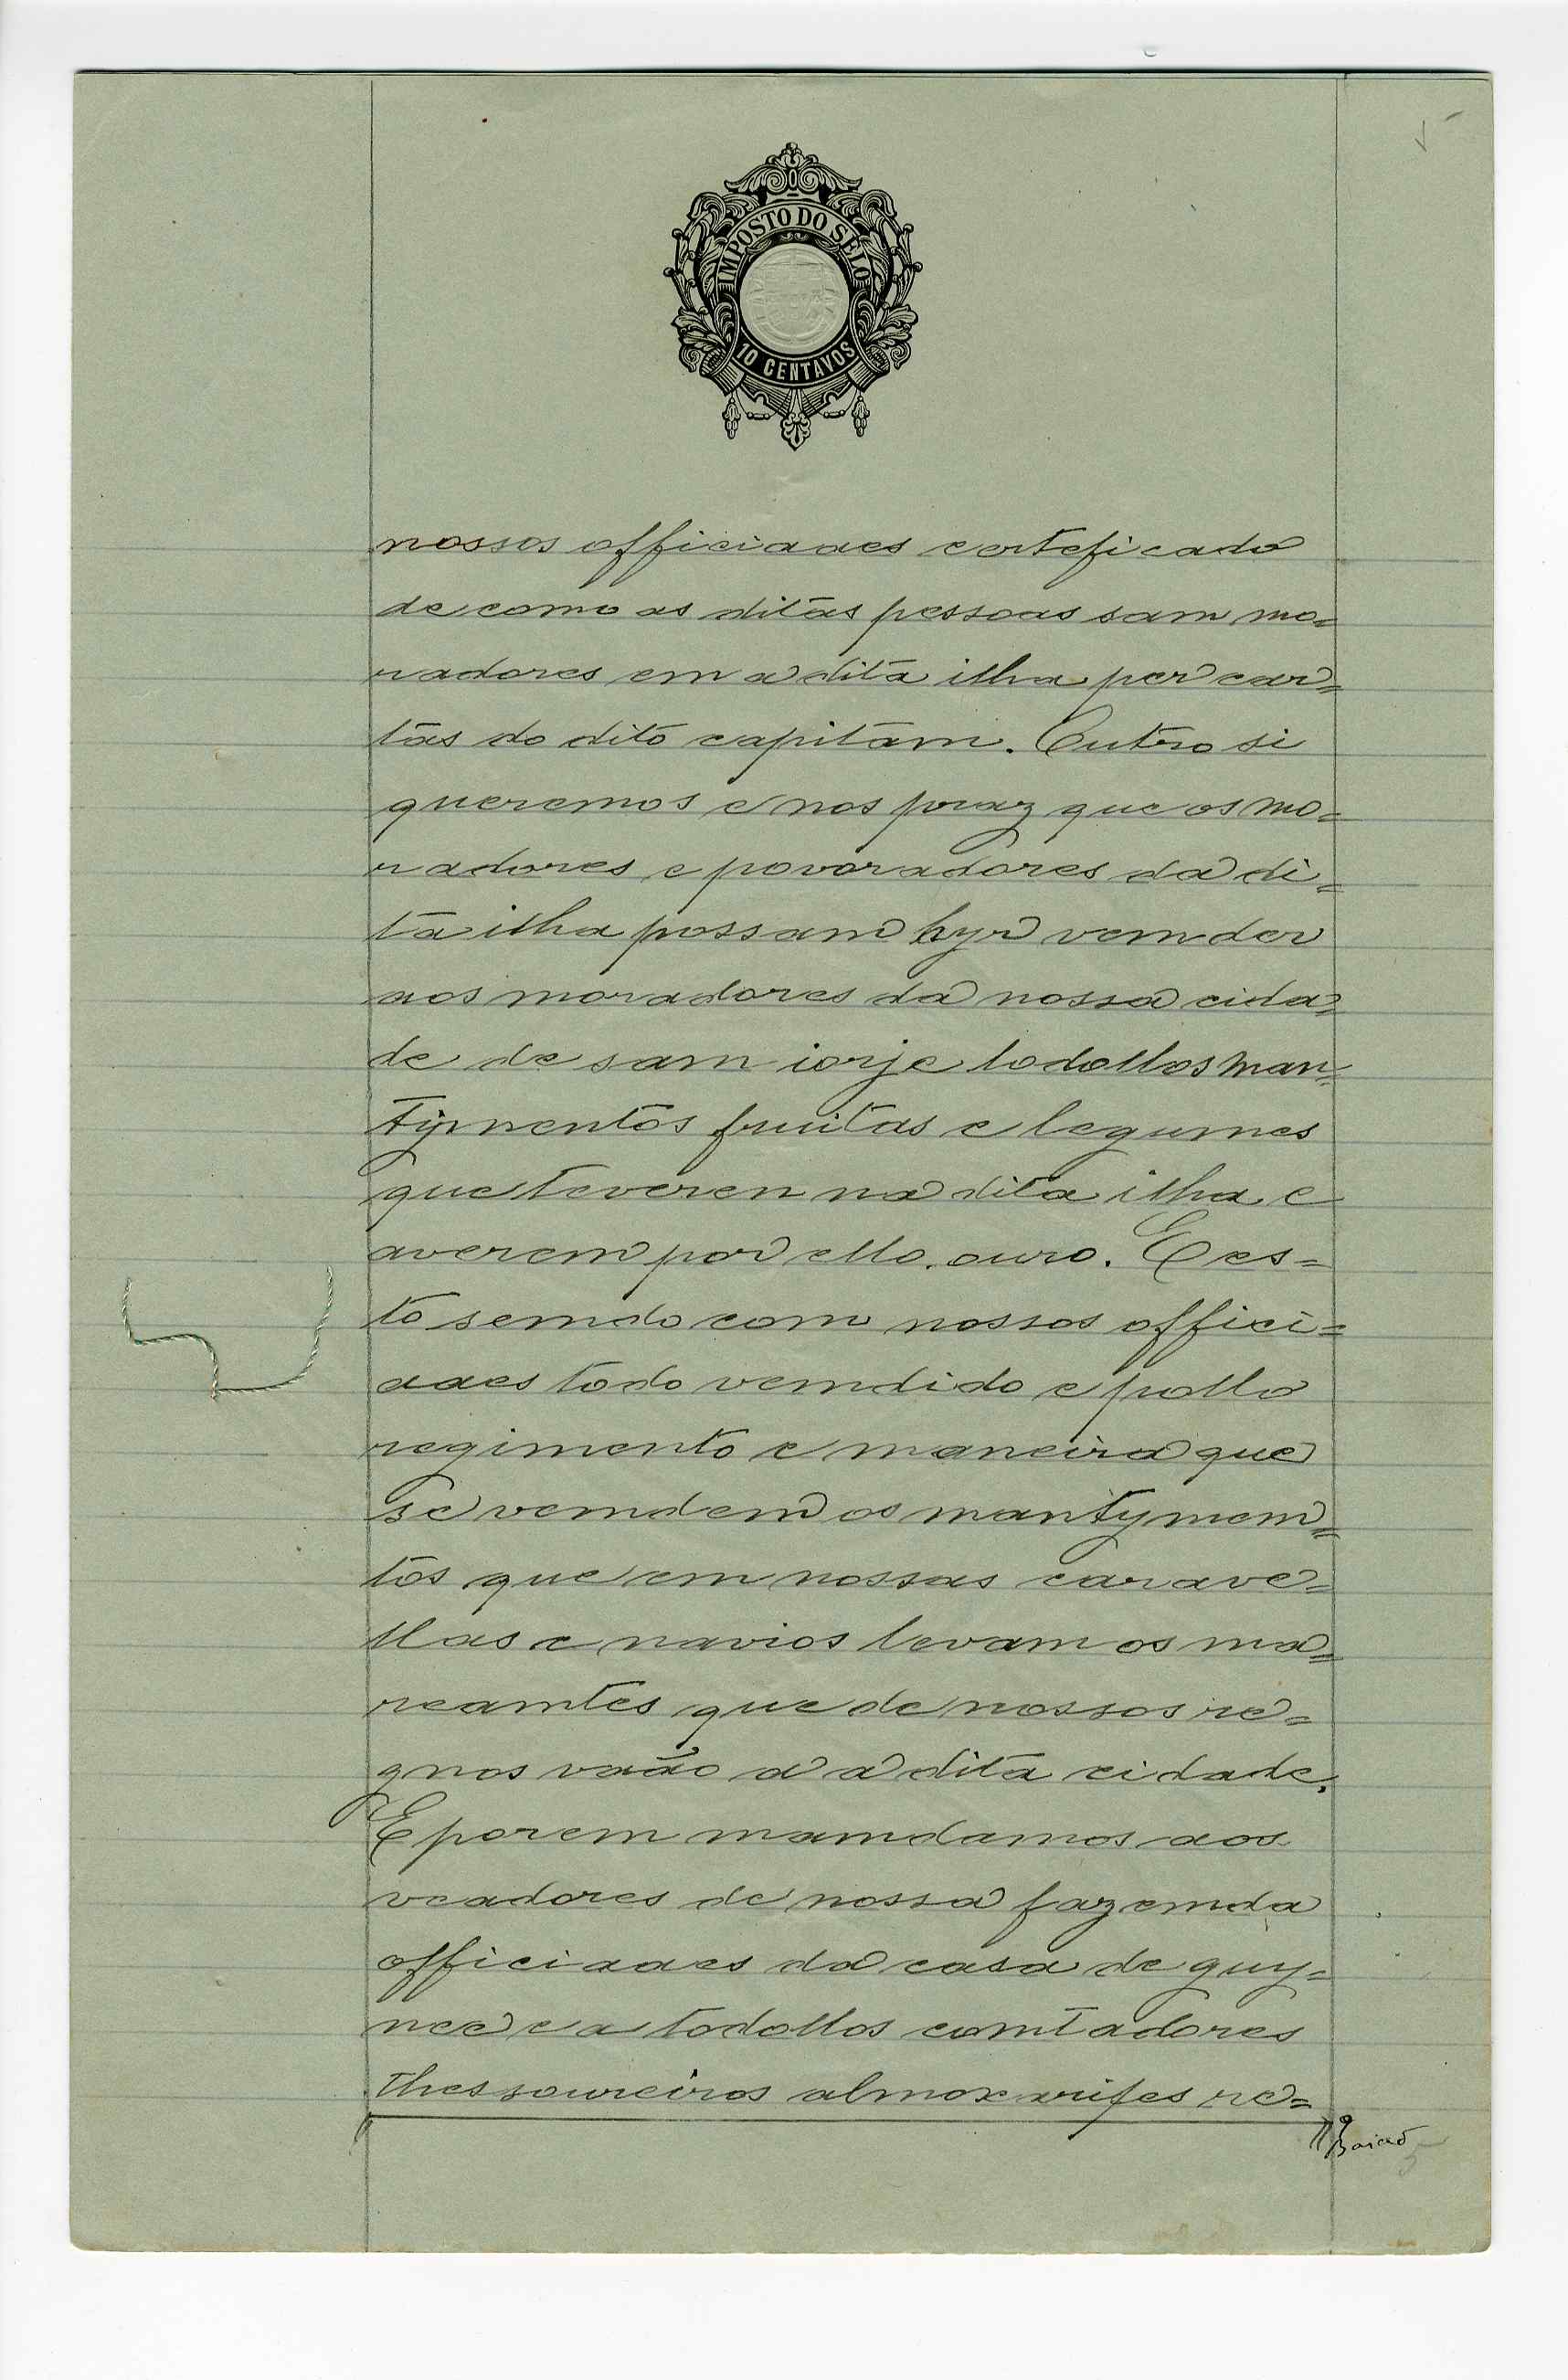 IMPOSTO DO SELO
10 CENTAVOS
nossos officiaaes certeficado
de como as ditas pessoas sam mo=
radores em a dita ilha per car=
tas do dito capitam. Outro si
queremos e nos praz que os mo=
radores e povoradores da di=
ta ilha possam hyr vemder
aos moradores da nossa cida=
de de sam iorje todollos man=
tijmentos fruitas e legumes
que teveren na dita ilha e
averem por ello ouro. E es=
to semdo com nossos offici=
aaes todo vemdido e pollo
regimento e maneira que
se vemdem os mantymem=
tos que em nossas carave=
llas e navios levam os ma=
reamtes que de nossos re=
gnos vaão a a dita cidade.
E porem mamdamos aos
veadores de nossa fazemda
officiaaes da casa de guy=
nee e a todollos comtadores
thessoureiros almoxarifes re=
Baião
5